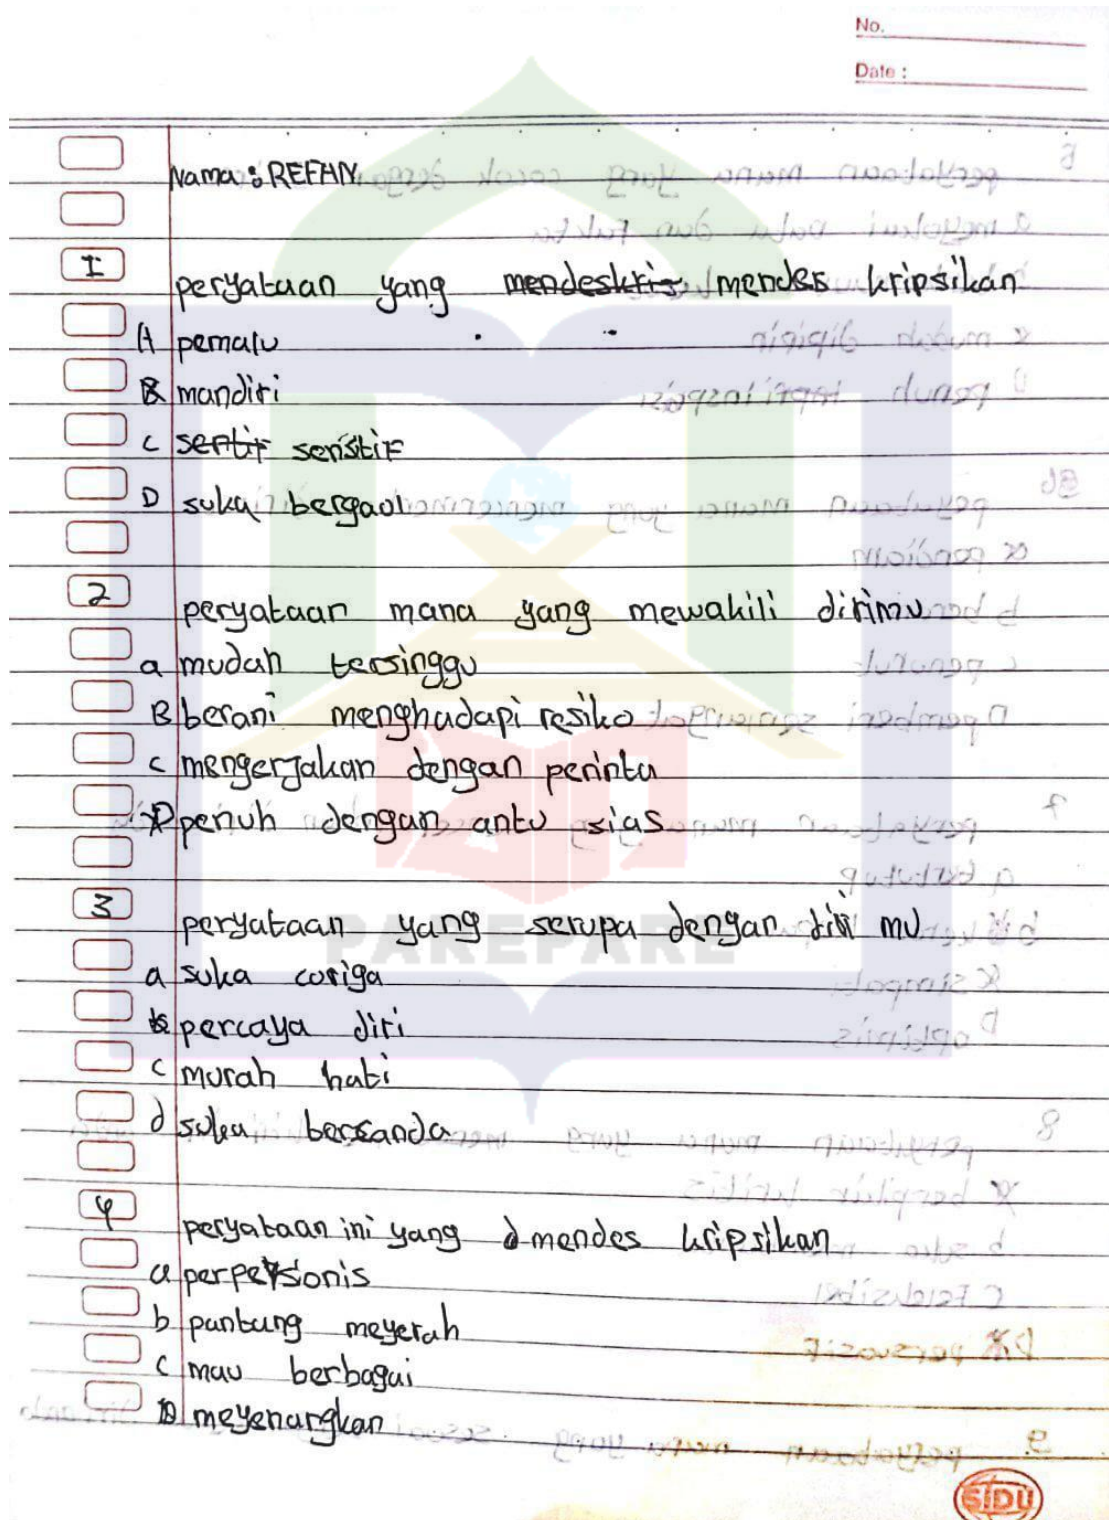 No.
Date :
Nama : REFAN
I peryataan yang mendeskris mendes kripsikan
A pemalu
B mandiri
C sentif senstif
D suka bergaul
2 peryataan mana yang mewakili dirimu
a mudah tersinggu
B berani menghadapi resiko
c mengerjakan dengan perinta
D penuh dengan antu sias
3 peryataan yang serupa dengan diri mu
a suka curiga
b percaya diri
c murah hati
d suka bercanda
4 peryataan ini yang d mendes kripsikan
a perpeksionis
b pantang meyerah
c mau berbagai
D meyenangkan
PAREPARE
SIDU